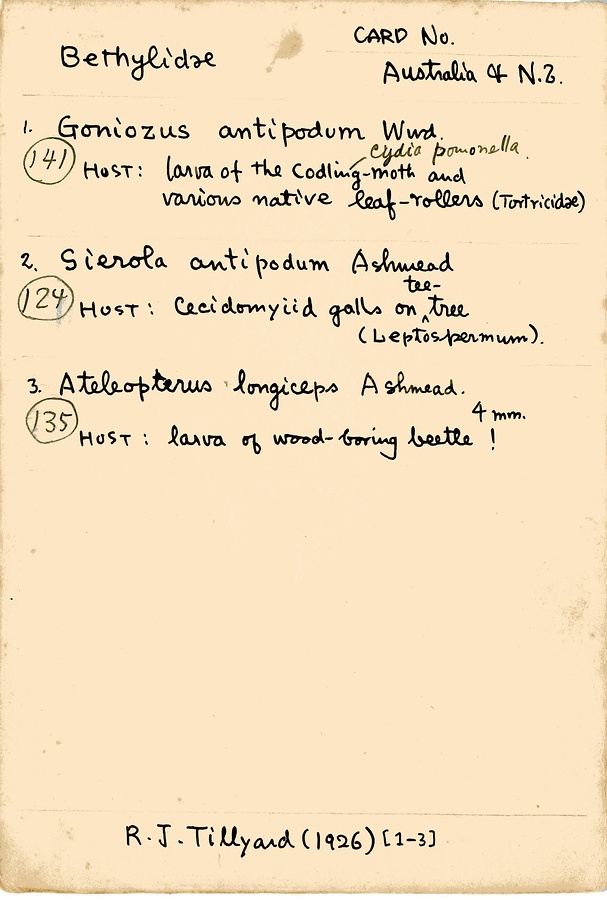 CARD No.
Bethylidae
Australia & N.Z.
1. Goniozus antipodum Wwd.
cydia pomonella.
141 HOST: larva of the Codling-moth and
various native leaf-rollers (Tortricidae)
2. Sierola antipodum Ashmead
tee-
124 HOST: Cecidomyiid galls on tree
(Leptospermum).
3. Ateleopterus longiceps Ashmead.
4 mm.
135 HOST: larva of wood-boring beetle !
R.J. Tillyard (1926) [1-3]